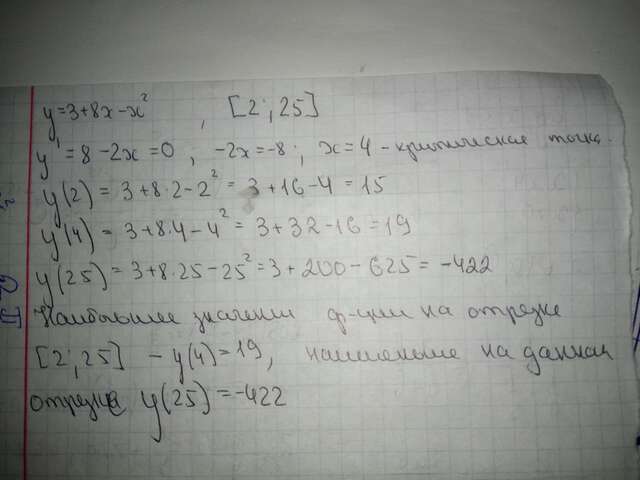 y=3+8x-x², [2;25]
y'=8-2x=0, -2x=-8; x=4 - критическая точка.
y(2)=3+8·2-2²=3+16-4=15
y(4)=3+8·4-4²=3+32-16=19
y(25)=3+8·25-25²=3+200-625=-422
Наибольшее значении ф-ции на отрезке
[2;25] - y(4)=19, наименьше на данном
отрезке y(25)=-422